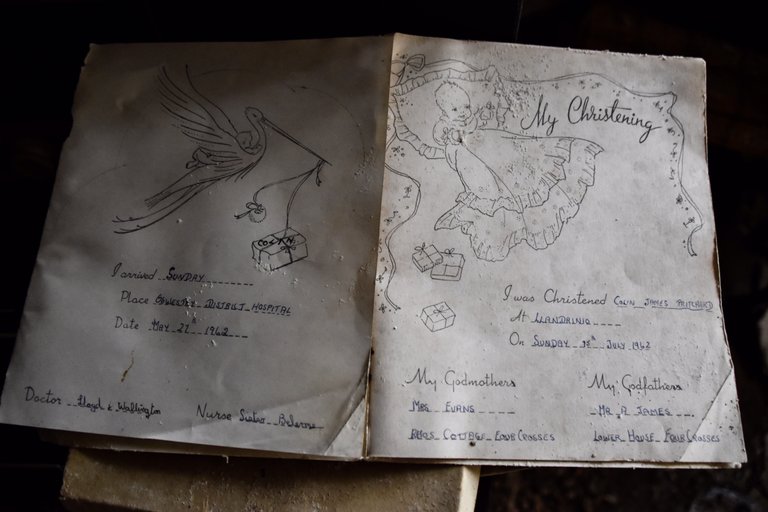 COLIN
I arrived SUNDAY
Place OSWESTRY DISTRICT HOSPITAL
Date MAY 27th 1962
Doctor Lloyd & Wallington
Nurse Sister
My Christening
I was Christened COLIN JAMES PRITCHARD
At LLANDRINIO
On SUNDAY JULY 1962
My Godmothers
MRS EVANS
COTTAGE FOUR CROSSES
My Godfathers
MR A JAMES
LOWER HOUSE FOUR CROSSES